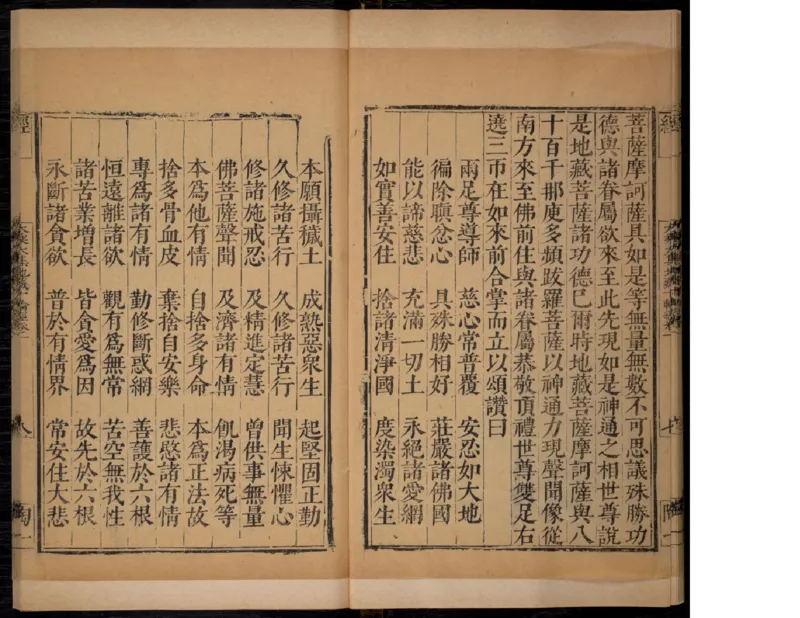 菩薩摩訶薩具如是等無量無數不可思議殊勝功
德與諸眷屬欲來至此先現如是神通之相世尊說
是地藏菩薩諸功德已爾時地藏菩薩摩訶薩與八
十百千那庾多頻跋羅菩薩以神通力現聲聞像從
南方來至佛前住與諸眷屬恭敬頂禮世尊雙足右
遶三帀在如來前合掌而立以頌讚曰
兩足尊導師　慈心常普覆　安忍如大地
徧除瞋忿心　具殊勝相好　莊嚴諸佛國
能以諦慈悲　充滿一切土　永絕諸愛網
如實善安住　捨諸清淨國　度染濁衆生
本願攝穢土　成熟惡衆生　起堅固正勤
久修諸苦行　久修諸苦行　聞生悚懼心
修諸施戒忍　及精進定慧　曾供事無量
佛菩薩聲聞　及濟諸有情　飢渴病死等
本爲他有情　自捨多身命　本爲正法故
捨多骨血皮　棄捨自安樂　悲愍諸有情
專爲諸有情　勤修斷惑網　善護於六根
恒遠離諸欲　觀有爲無常　苦空無我性
諸苦業增長　皆貪愛爲因　故先於六根
永斷諸貪欲　普於有情界　常安住大悲